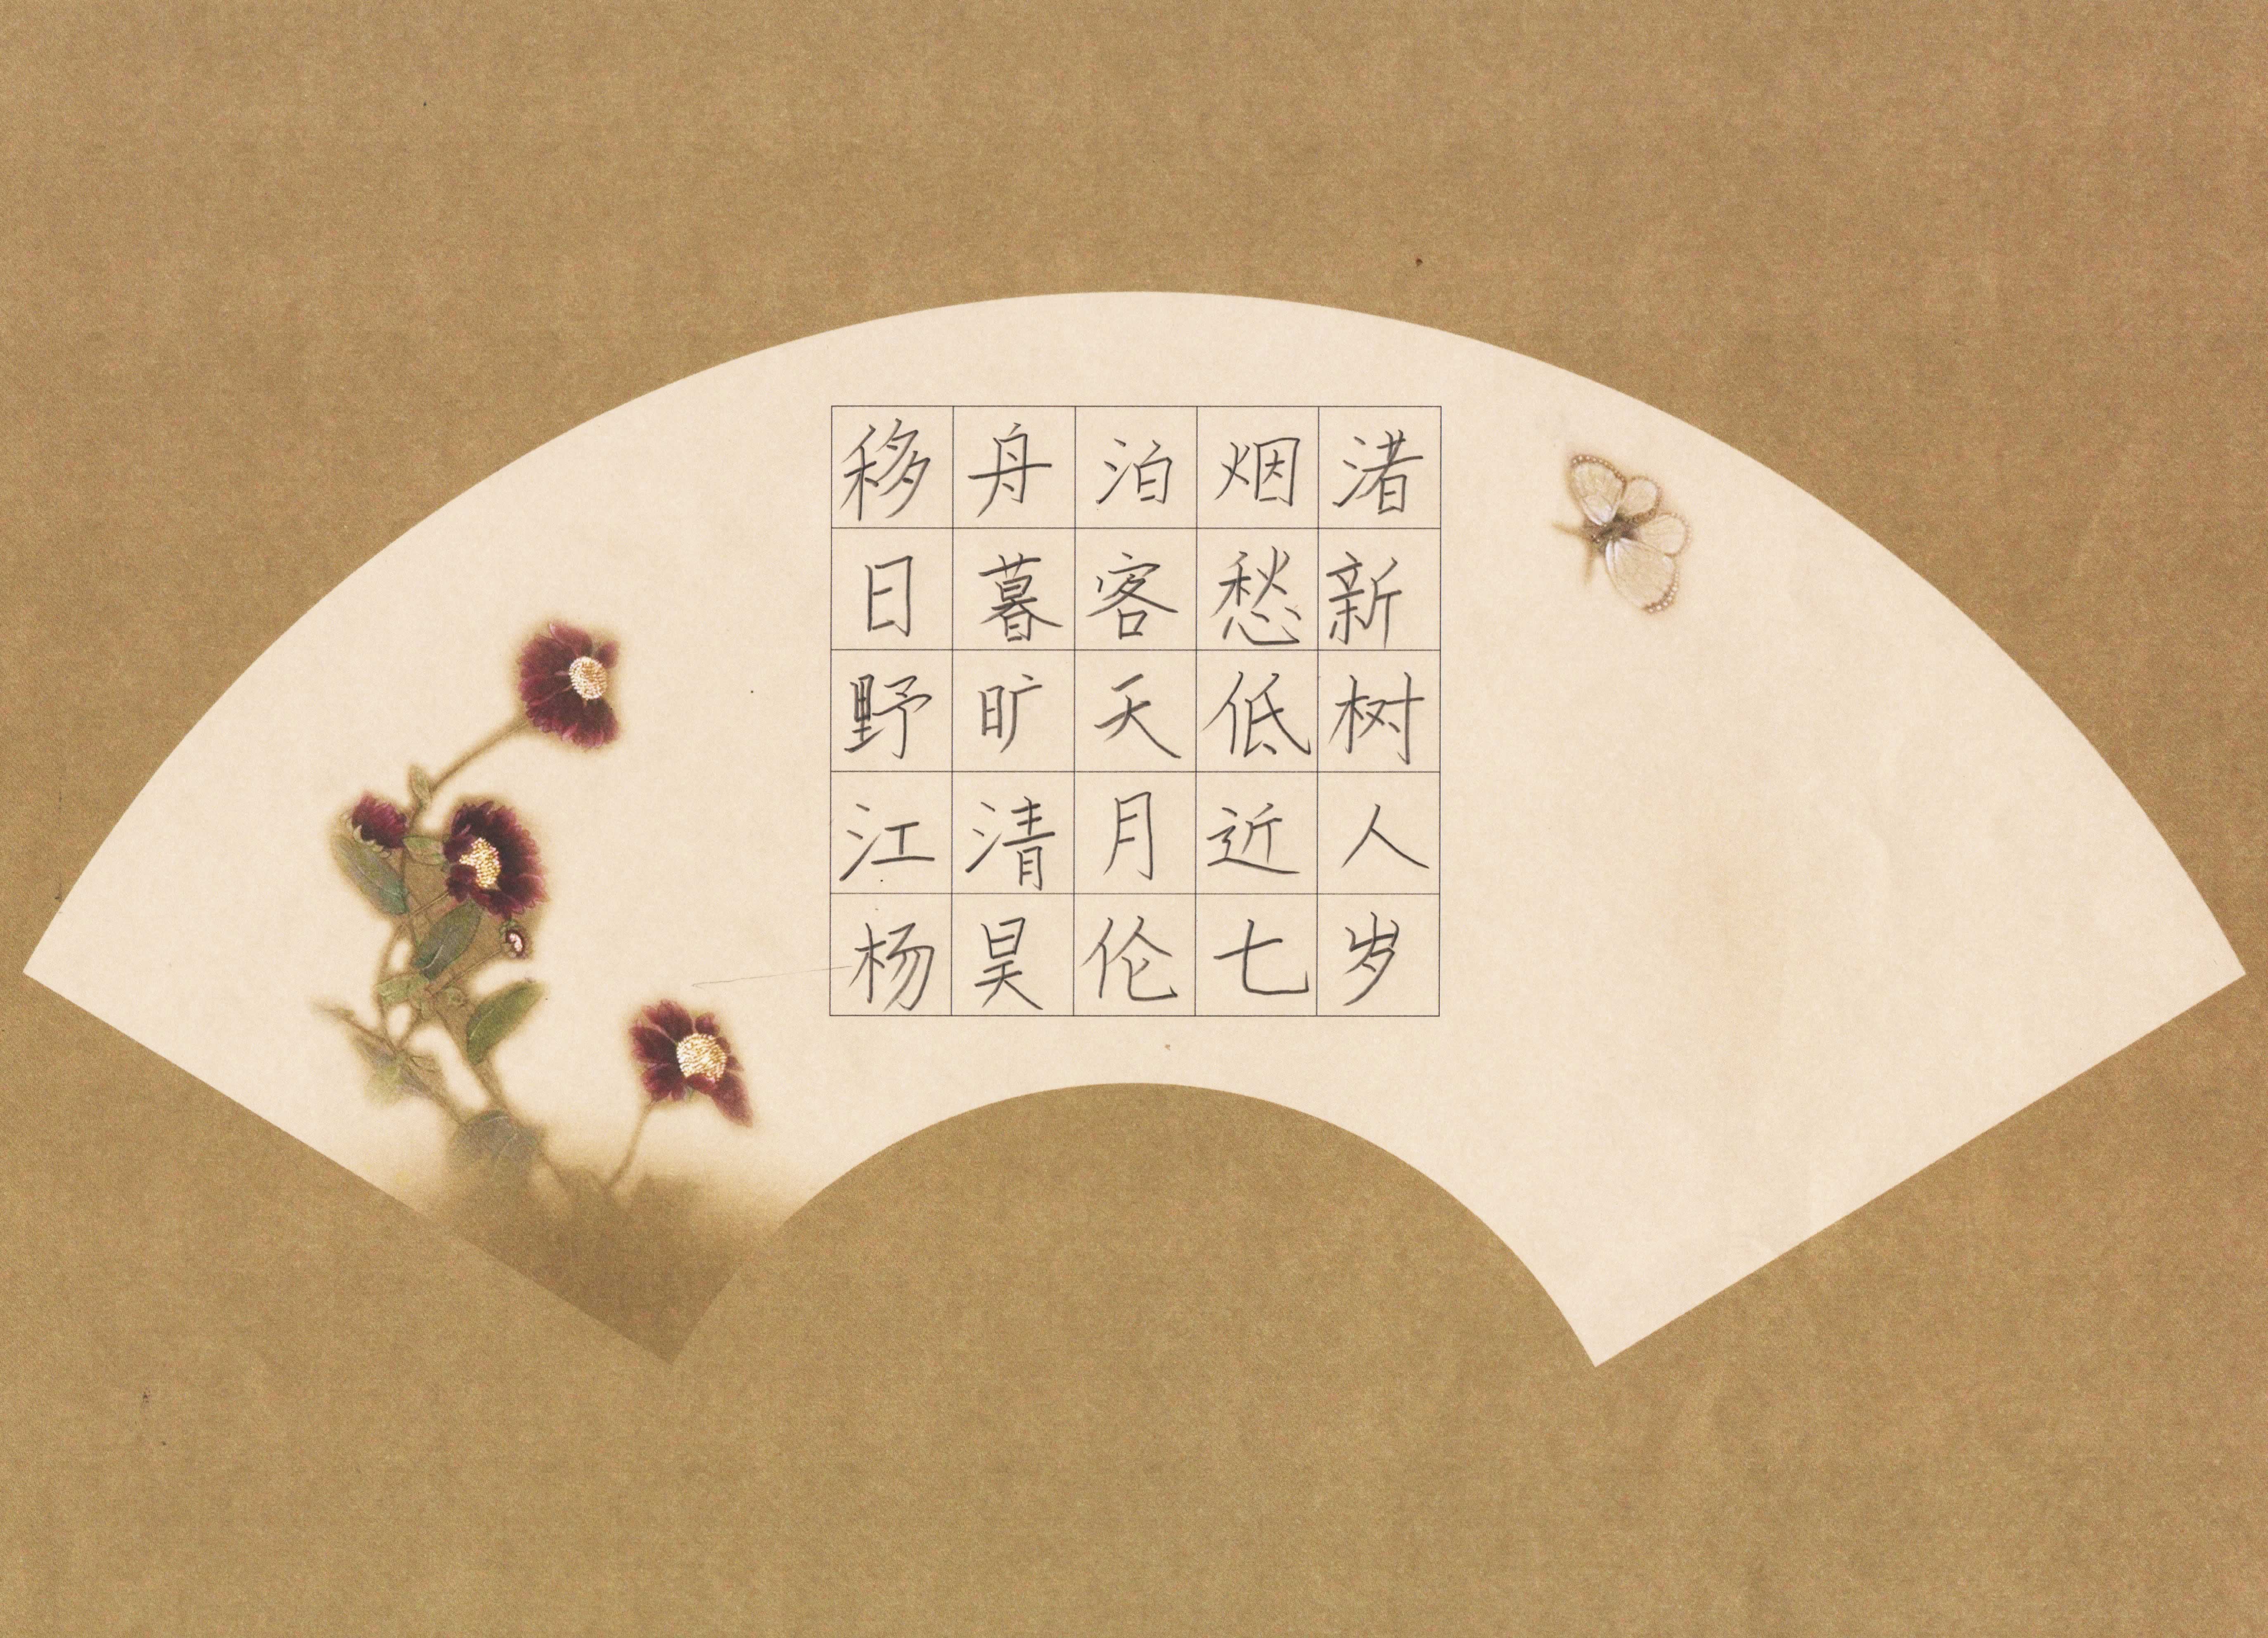 移舟泊烟渚
日暮客愁新
野旷天低树
江清月近人
杨昊伦七岁